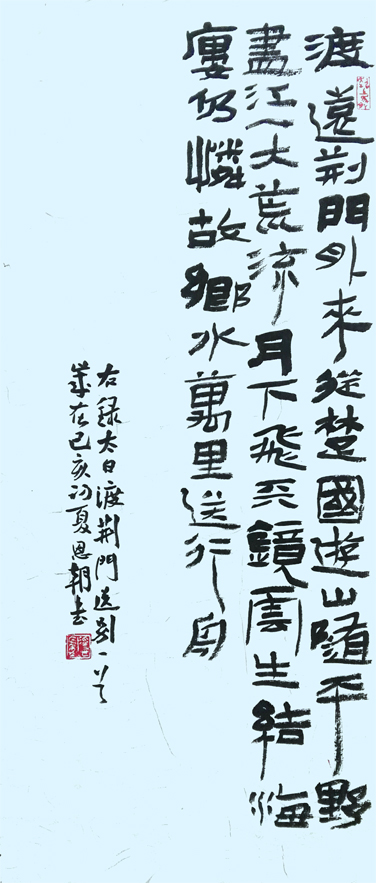 渡遠荆門外來從楚國遊山隨平野
盡江入大荒流月下飛天鏡雲生結海
廔仍憐故鄉水萬里送行舟
右録太白渡荆門送别一首
歲在己亥初夏恩朝書